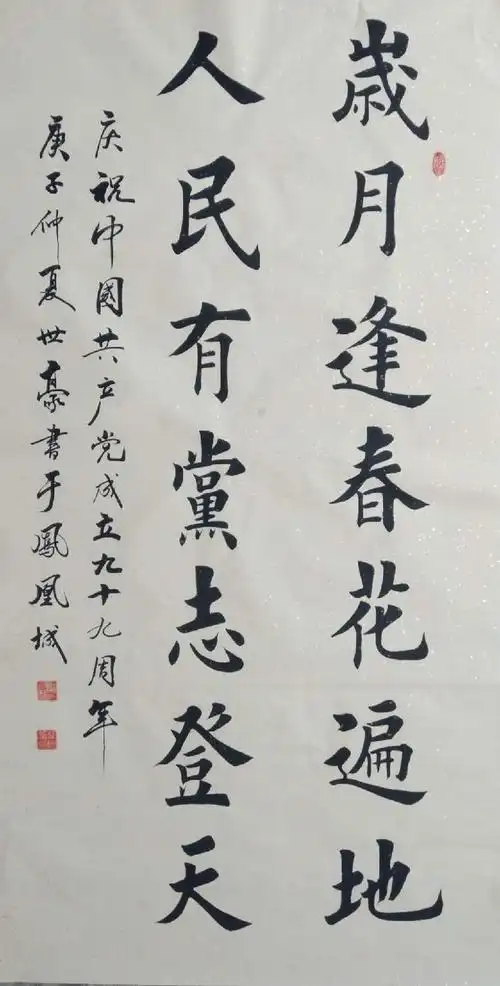 歲月逢春花遍地
人民有黨志登天
庆祝中國共产党成立九十九周年
庚子仲夏世豪書于鳳凰城